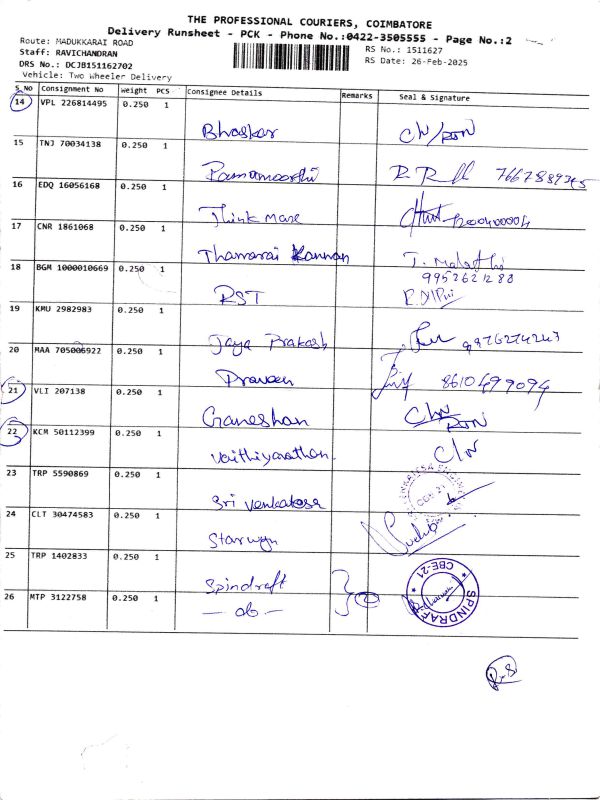 THE PROFESSIONAL COURIERS, COIMBATORE
Delivery Runsheet - PCK - Phone No.:0422-3505555 - Page No.:2
Route: MADUKKARAI ROAD
RS No.: 1511627
Staff: RAVICHANDRAN
RS Date: 26-Feb-2025
DRS No.: DCJB151162702
Vehicle: Two Wheeler Delivery
S.No Consignment No Weight PCS Consignee Details Remarks Seal & Signature
14 VPL 226814495 0.250 1
Bhaskar C/N/RTN
15 TNJ 70034138 0.250 1
Ramamoorthi
16 EDQ 16056168 0.250 1
Think Mare
17 CNR 1861068 0.250 1
Thamarai Kannan T. Malathi
9952621288
18 BGM 1000010669 0.250 1
RST
19 KMU 2982983 0.250 1
Jaya Prakash
20 MAA 705006922 0.250 1
Praveen 8610499094
21 VLI 207138 0.250 1
Ganeshan C/N RTN
22 KCM 50112399 0.250 1
Vaithiyanathan. C/N
23 TRP 5590869 0.250 1
Sri Venkatesa
24 CLT 30474583 0.250 1
Starwyn
25 TRP 1402833 0.250 1
Spindraft
26 MTP 3122758 0.250 1
— do — 2
SPINDRAF CBE-21
R.S